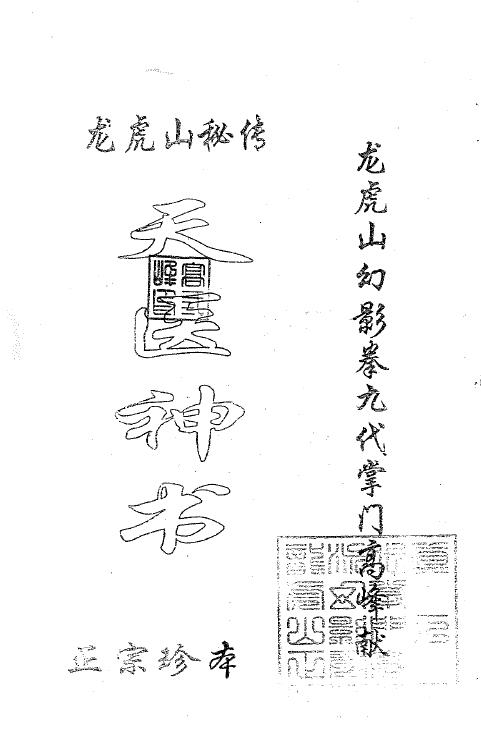 龙虎山秘传
天医神书
正宗珍本
龙虎山幻影拳九代掌门高峰献